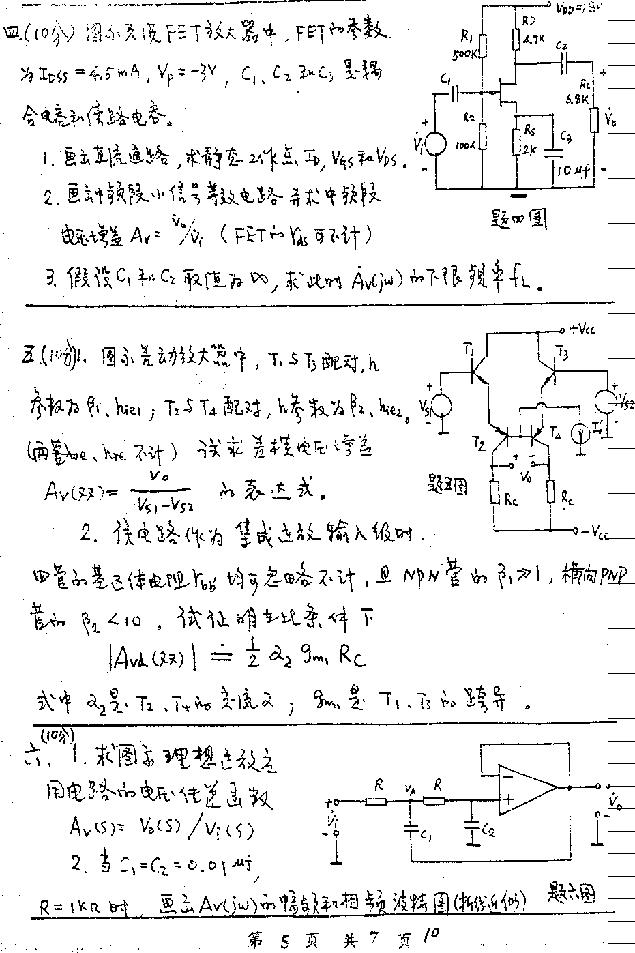 四.(10分) 图示共源FET放大器中, FET的参数
为 IDSS = 4.5mA, Vp = -3V, C1、C2 和 C3 是耦
合电容和傍路电容。
1. 画出直流通路, 求静态工作点 ID, VGS 和 VDS。
2. 画出中频段小信号等效电路 并求中频段
电压增益 Av = V̇o/V̇i (FET的 rds 可不计)
3. 假设 C1 和 C2 取值为 ∞, 求此时 Av(jω) 的下限频率 fL。
R1
500K
R2
100K
4.7K
C1
C2
RL
6.8K
V̇o
V̇i
Rs
2K
C3
10μf
题四图
五.(10分)1. 图示差动放大器中, T1与T3配对, h
参数为 β1、hie1; T2与T4配对, h参数为 β2、hie2。
(两管hoe、hre不计) 试求差模电压增益
Av(双) = Vo / (VS1 - VS2) 的表达式。
2. 该电路作为集成运放输入级时.
四管的基区体电阻 rbb' 均可忽略不计, 且 NPN 管的 β1≫1, 横向PNP
管的 β2 < 10, 试证明在此条件下
|Avd(双)| ≐ 1/2 α2 gm1 RC
式中 α2 是 T2、T4的交流α; gm1 是 T1、T3的跨导.
+Vcc
T1
T3
VS1
VS2
T2
T4
Vo
Rc
Rc
-Vcc
题五图
(10分)
六. 1. 求图示理想运放应
用电路的电压传递函数
Av(s) = Vo(s) / Vi(s)
2. 当 C1=C2=0.01μf,
R=1KΩ 时 画出Av(jω)的幅频和相频波特图(折线近似)
R
VA
R
C1
C2
V̇i
V̇o
题六图
第 5 页 共 7 页 10